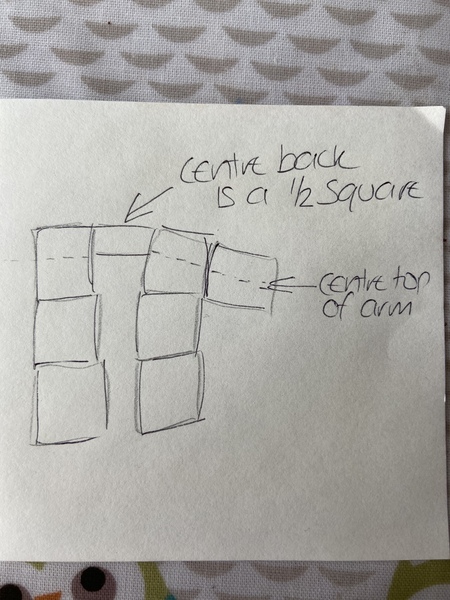 centre back
is a 1/2 square
centre top
of arm